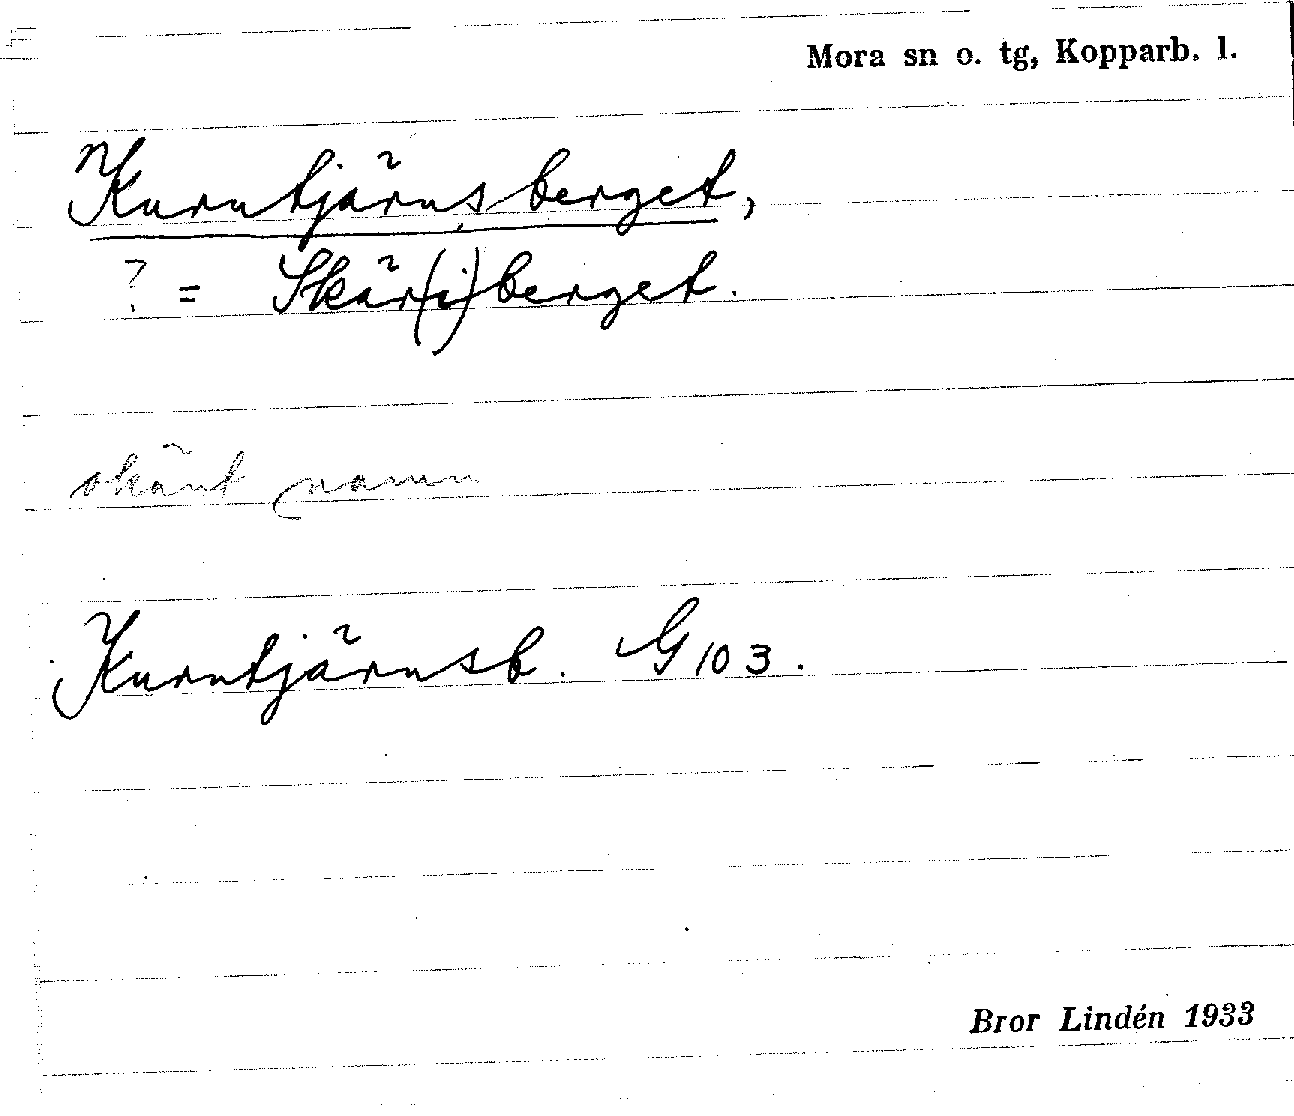 Mora sn o. tg, Kopparb. l.
n Kurntjärnsberget,
? = Skär(i)berget.
okänt namn
Kurntjärnsb. G 103.
Bror Lindén 1933